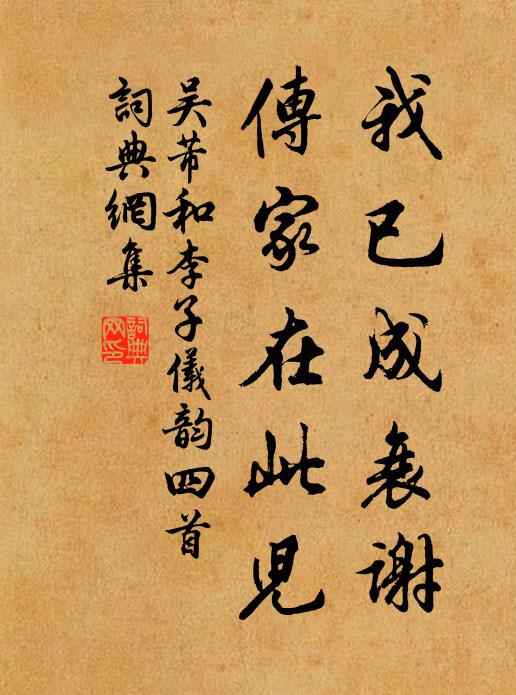 我已成衰謝
傳家在此兒
吳芾和李子儀韵四首
詞典網集
詞典網印